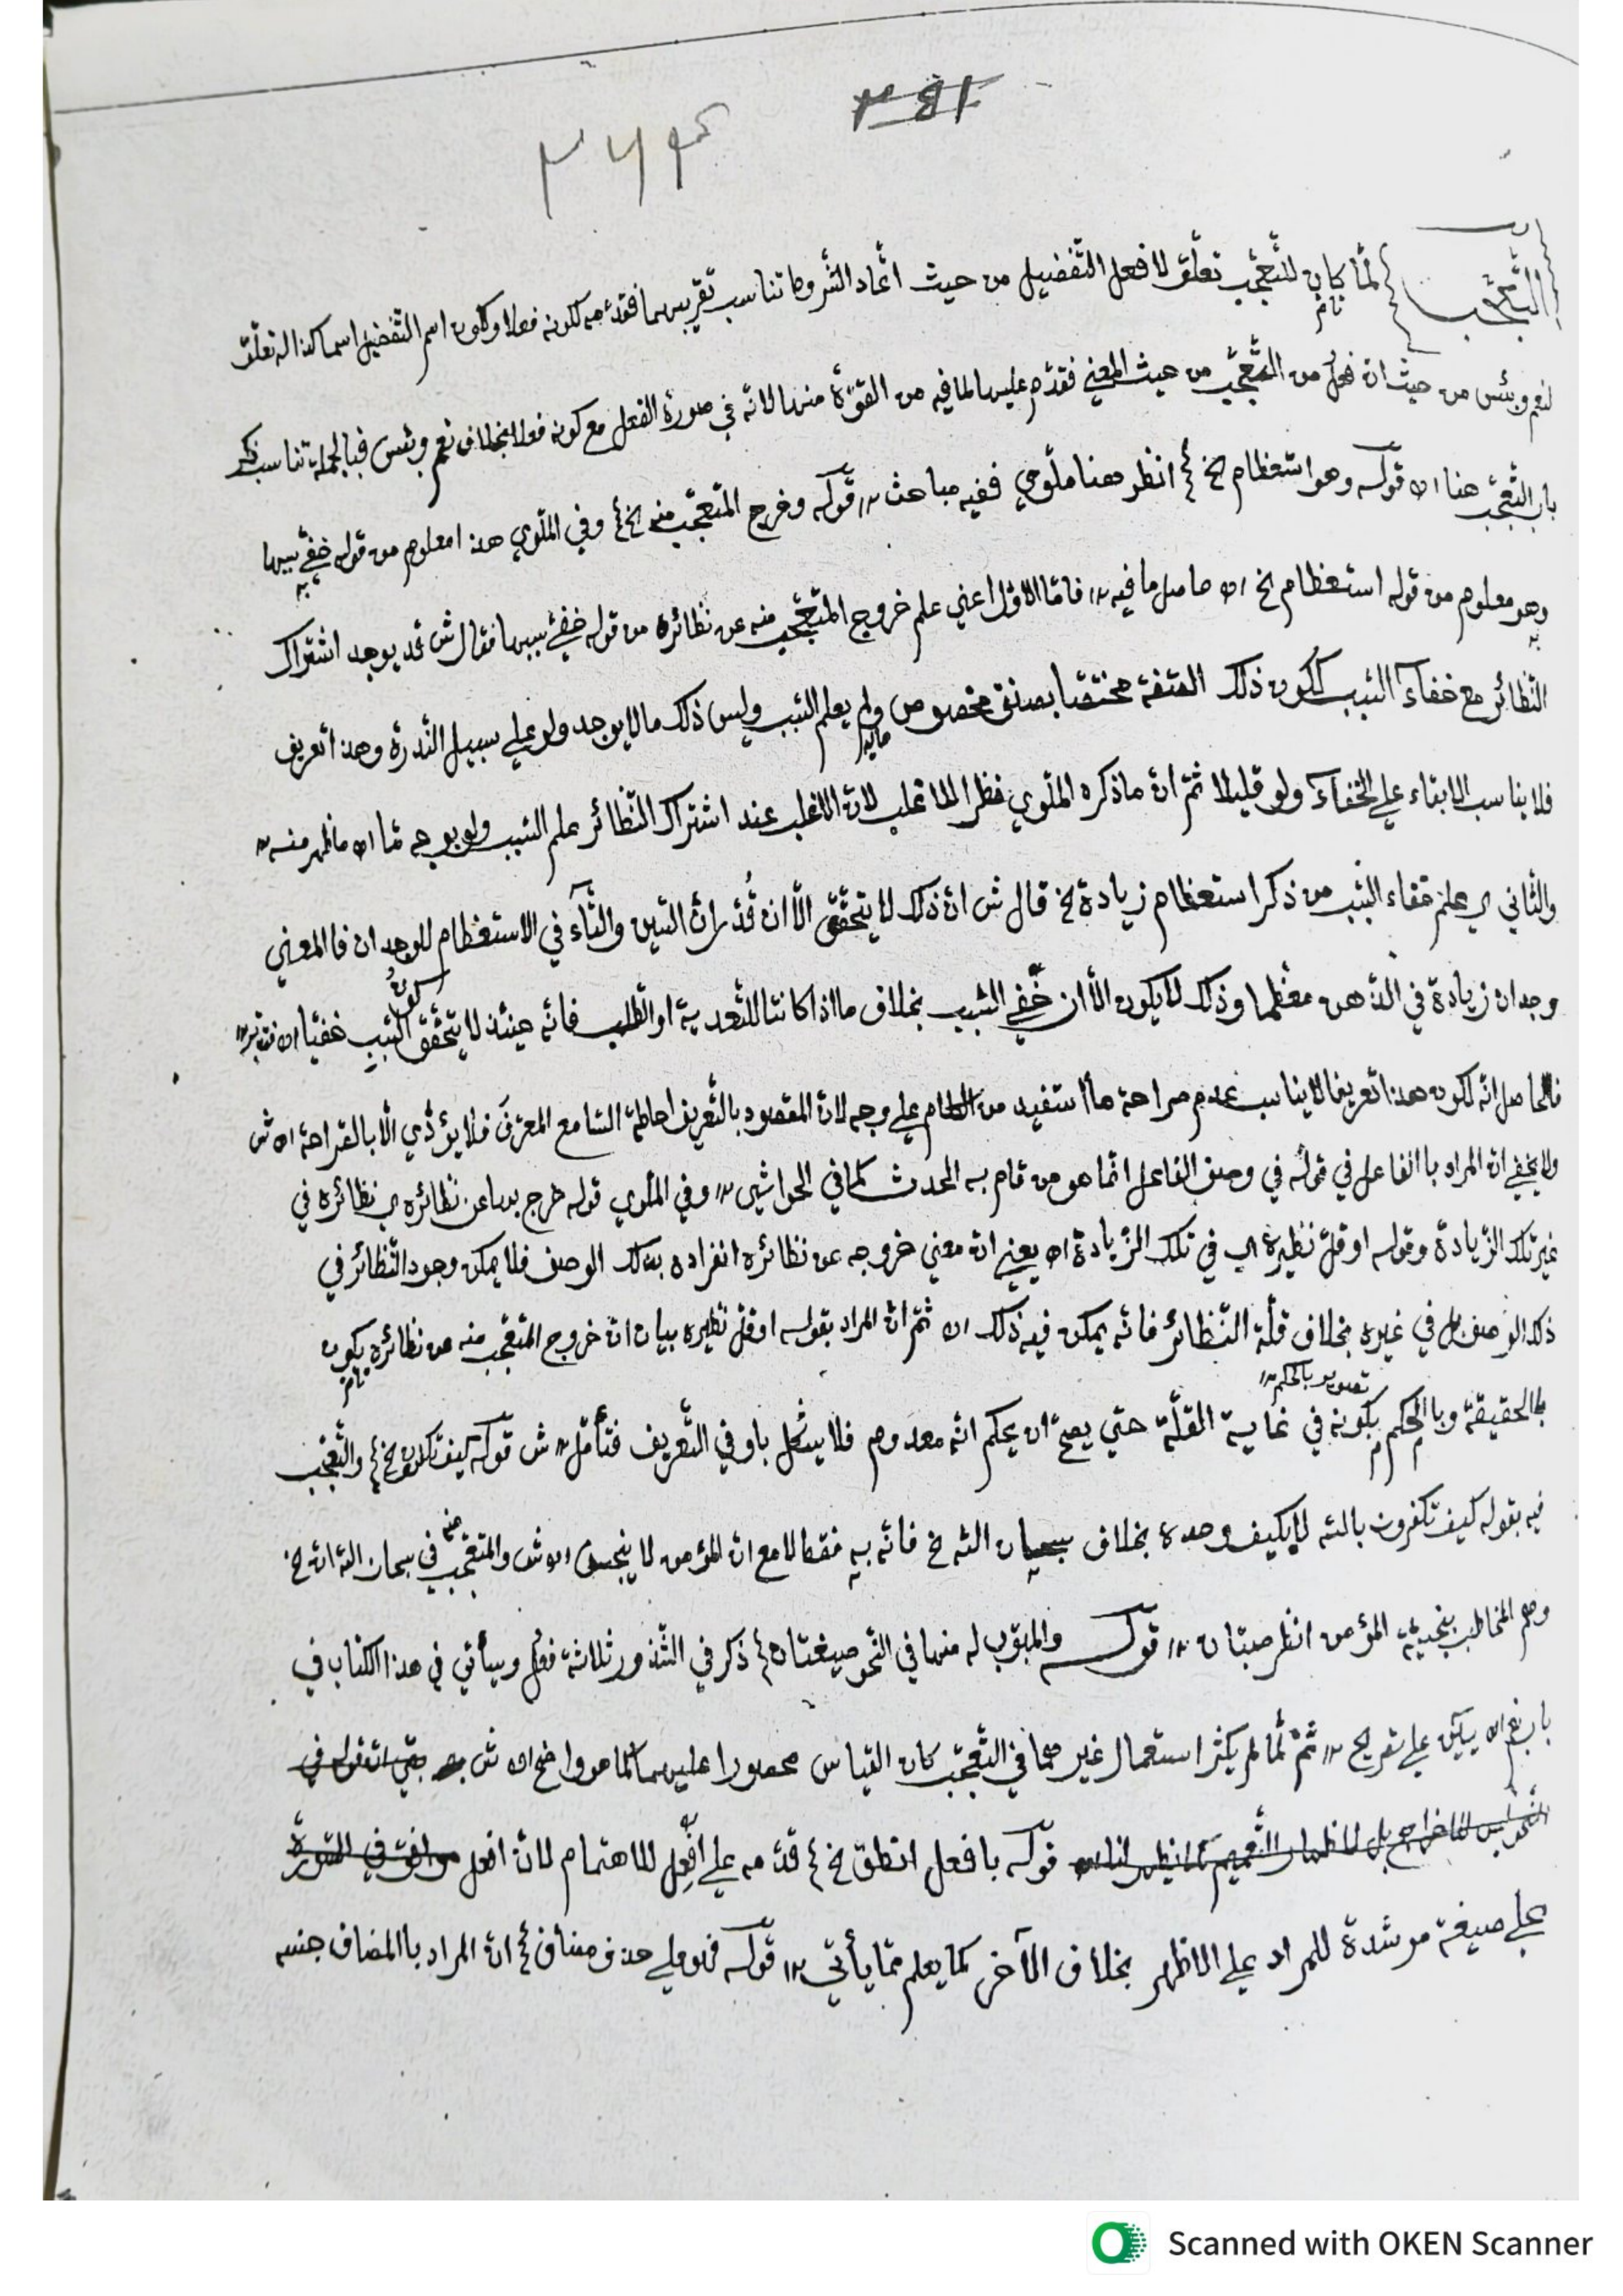 ٣٦٤
باب التّعجّب لمّا كان للتّعجّب تعلّق لافعل التّفضيل من حيث اتّحاد الشّروط تناسب تقريبهما فقدّمه لكونه فعلا وكون اسم التّفضيل اسما كذا له تعلّق تامّ
لنعم وبئس من حيث ان فعل من التّعجّب من حيث المعني فقدّم عليها لما فيه من القوّة منها لانّه في صورة الفعل مع كونه فعلا بخلاف نعم وبئس فبالجملة تناسب ذكر
باب التّعجّب هنا اه قوله وهو استعظام الخ انظر هنا ملّوي ففيه مباحث قوله وخرج المتعجّب منه الخ وفي الملّوي هذا معلوم من قوله خفي سببها
وهو معلوم من قوله استعظام الخ اه حاصل ما فيه فامّا الاوّل اعني علم خروج المتعجّب منه عن نظائره من قوله خفي سببها فقال ش قد يوجد اشتراك
النّظائر مع خفاء السّبب لكون ذلك الصّفة مختصّا بصنف مخصوص ولم يعلم السّبب وليس ذلك مما لا يوجد ولو علي سبيل النّدرة وهذا تعريف
فلا يناسب الابقاء علي الخفاء ولو قليلا ثمّ انّ ما ذكره الملّوي نظر الما غلب لانّ الاغلب عند اشتراك النّظائر علم السّبب ولو بوجه مّا اه ما ظهر منه
والثاني اي علم خفاء السّبب من ذكر استعظام زيادة الخ قال ش انّ ذلك لا يتحقّق الّا ان قُدّر انّ السّين والتّاء في الاستعظام للوجدان فالمعني
وجدان زيادة في الذّهن معظّما وذلك لا يكون الّا ان خفي السّبب بخلاف ما اذا كانتا للتّعدية او الطّلب فانّه حينئذ لا يتحقّق كون السّبب خفيّا اه فتدبّر
فالحاصل انّه لكون هذا تعريفا لا يناسب عدم صراحة ما استفيد من الكلام علي وجه لانّ المقصود بالتّعريف احاطة السّامع المعرّف فلا يؤدّي الّا بالصّراحة اه ش
ولا يخفي انّ المراد باالفاعل في قوله في وصف الفاعل انّما هو من قام به الحدث كما في الحواشي وفي الملّوي قوله خرج بها عن نظائره اي نظائره في
غير تلك الزّيادة وقوله او قلّ نظيره اي في تلك الزّيادة اه يعني انّ معني خروجه عن نظائره انفراده بذلك الوصف فلا يمكن وجود النّظائر في
ذلك الوصف بل في غيره بخلاف قلّة النّظائر فانّه يمكن فيه ذلك اه ثمّ انّ المراد بقوله او قلّ نظيره بيان انّ خروج المتعجّب منه عن نظائره يكون تامّ
باالحقيقة وباالحكم بكونه في غاية القلّة حتي يصحّ ان يحكم انّه معدوم فلا يشكل باو في التّعريف فتأمّل ش قوله كيف تكفرون الخ والتّعجّب
تصوير بالحكم
فيه بقوله كيف تكفرون بالله لا بكيف وحده بخلاف سبحان الله الخ فانّه به فقط لا مع انّ المؤمن لا ينجس اه ش والمتعجّب منه في سبحان الله انّ الخ
وهم المخاطب بنجسيّة المؤمن انظر صبّان قوله والمبوّب له منها في النّحو صيغتان ذكر في الشّذور ثلاثة فعُل وسيأتي في هذا الكتاب في
باب نعم اه يٰس علي تصريح ثمّ لمّا لم يكثر استعمال غيرهما في التّعجّب كان القياس محصورا عليهما كما هو واضح اه ش
قوله بافعل انطق الخ قدّمه علي افعِل للاهتمام لانّ افعل
علي صيغة مرشدة للمراد علي الاظهر بخلاف الآخر كما يعلم ممّا يأتي قوله فهو علي حذف مضاف انّ المراد باالمضاف جنسه
Scanned with OKEN Scanner